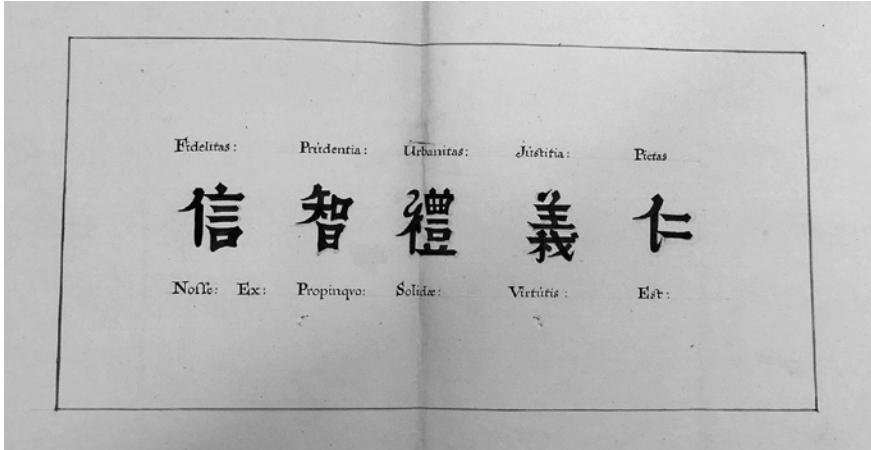 Fidelitas: Prudentia: Urbanitas: Justitia: Pietas
信 智 禮 義 仁
Nosse: Ex: Propinqvo: Solidæ: Virtutis: Est: